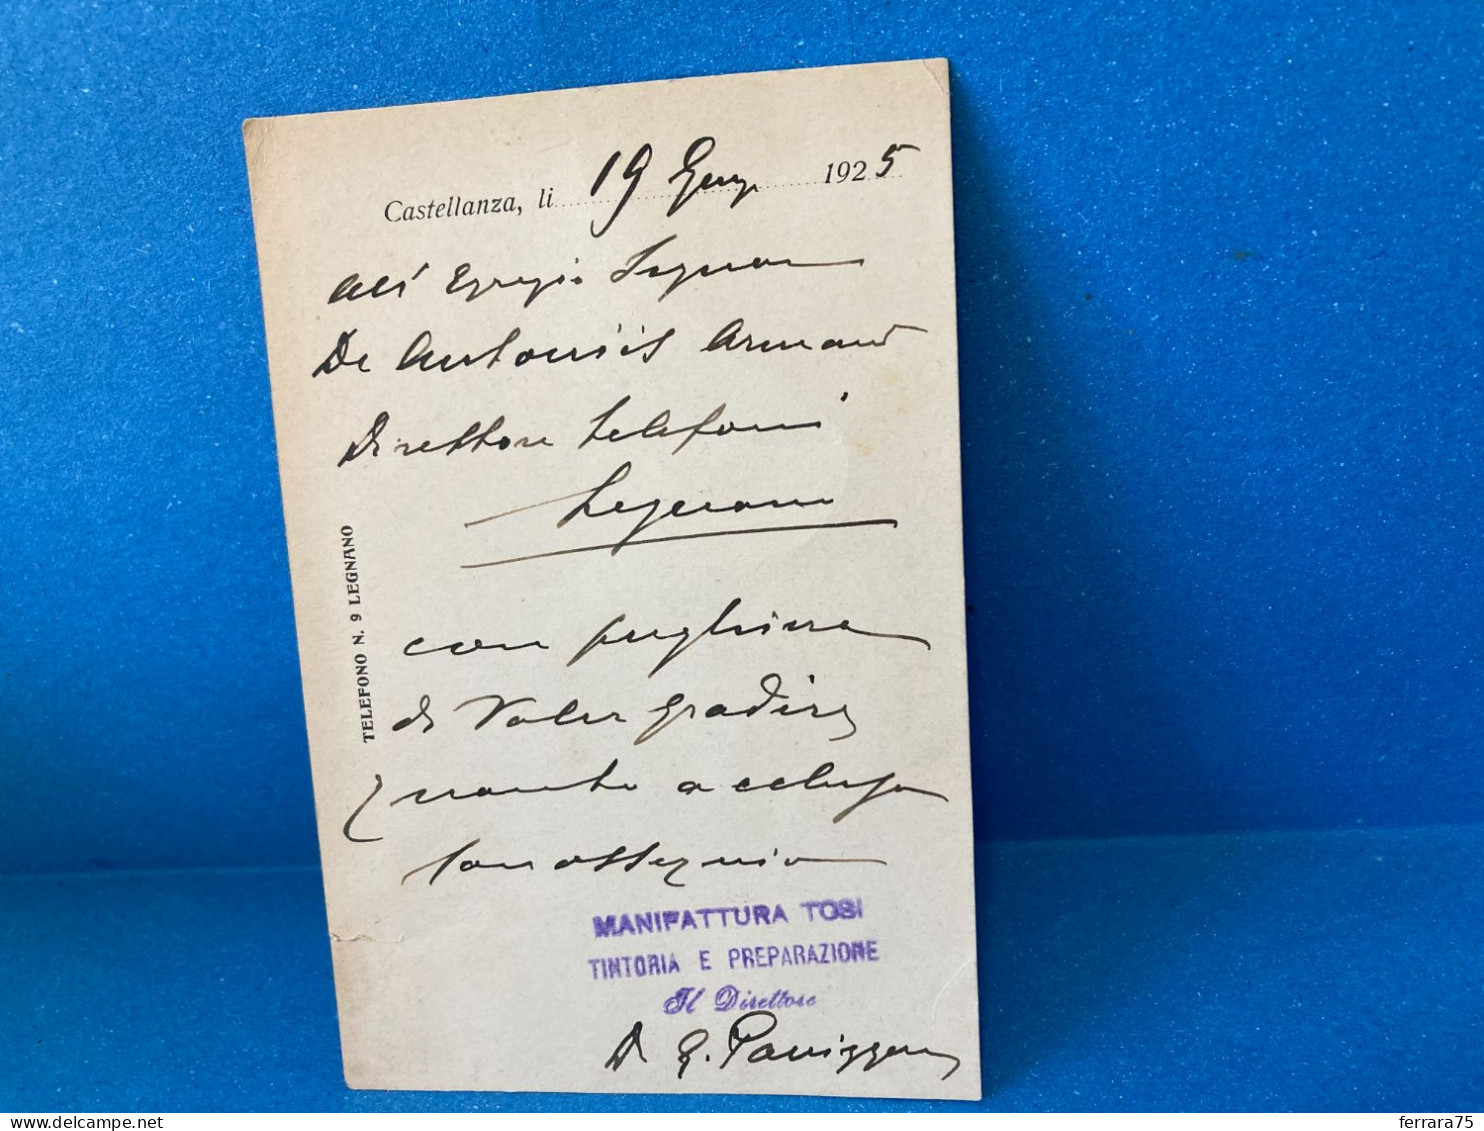 Castellanza, li 19 Giug. 1925
All' Egregio Signor
De Antoniis Armand
Direttore Telefoni
Legnano
con preghiera
di voler gradire
quanto accluso
con ossequio
MANIFATTURA TOSI
TINTORIA E PREPARAZIONE
Il Direttore
D G.
TELEFONO N. 9 LEGNANO
ferrara75